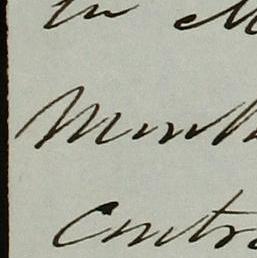 in M
Month
Contr